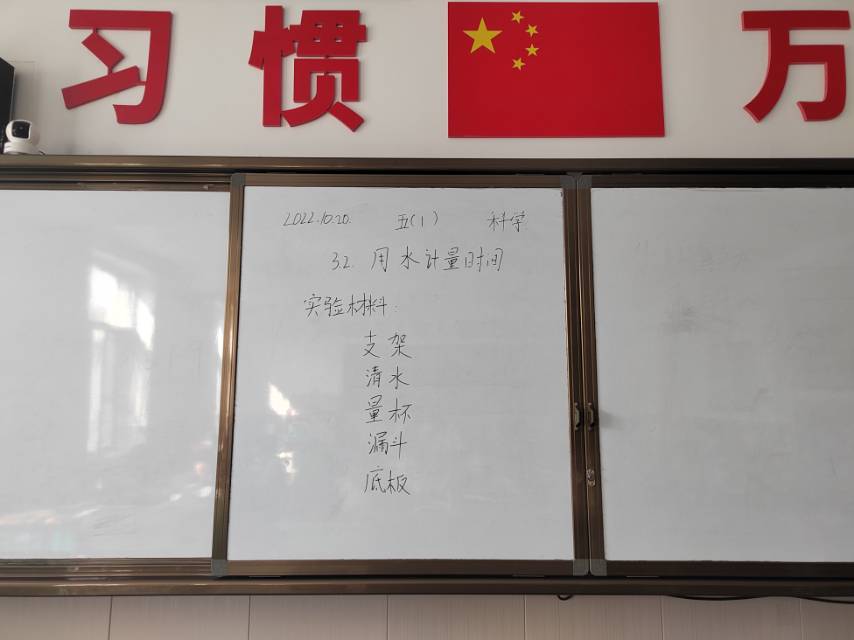 习惯 万
2022.10.20. 五(1) 科学
3.2. 用水计量时间
实验材料:
支架
清水
量杯
漏斗
底板